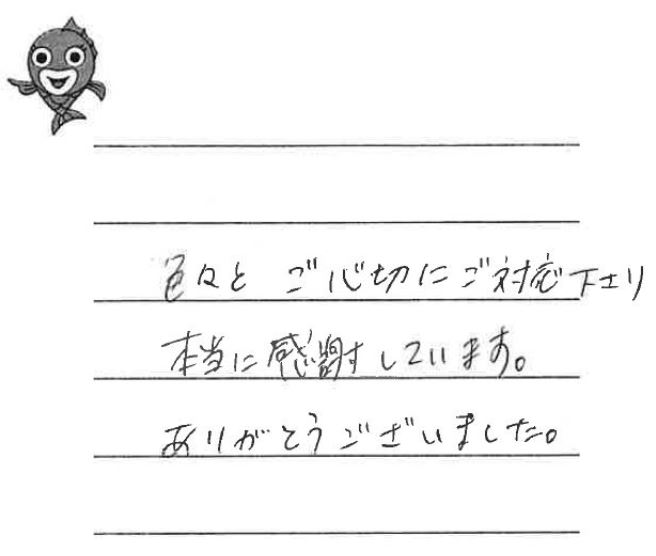 色々と ご心切にご対応下さり
本当に感謝しています。
ありがとうございました。